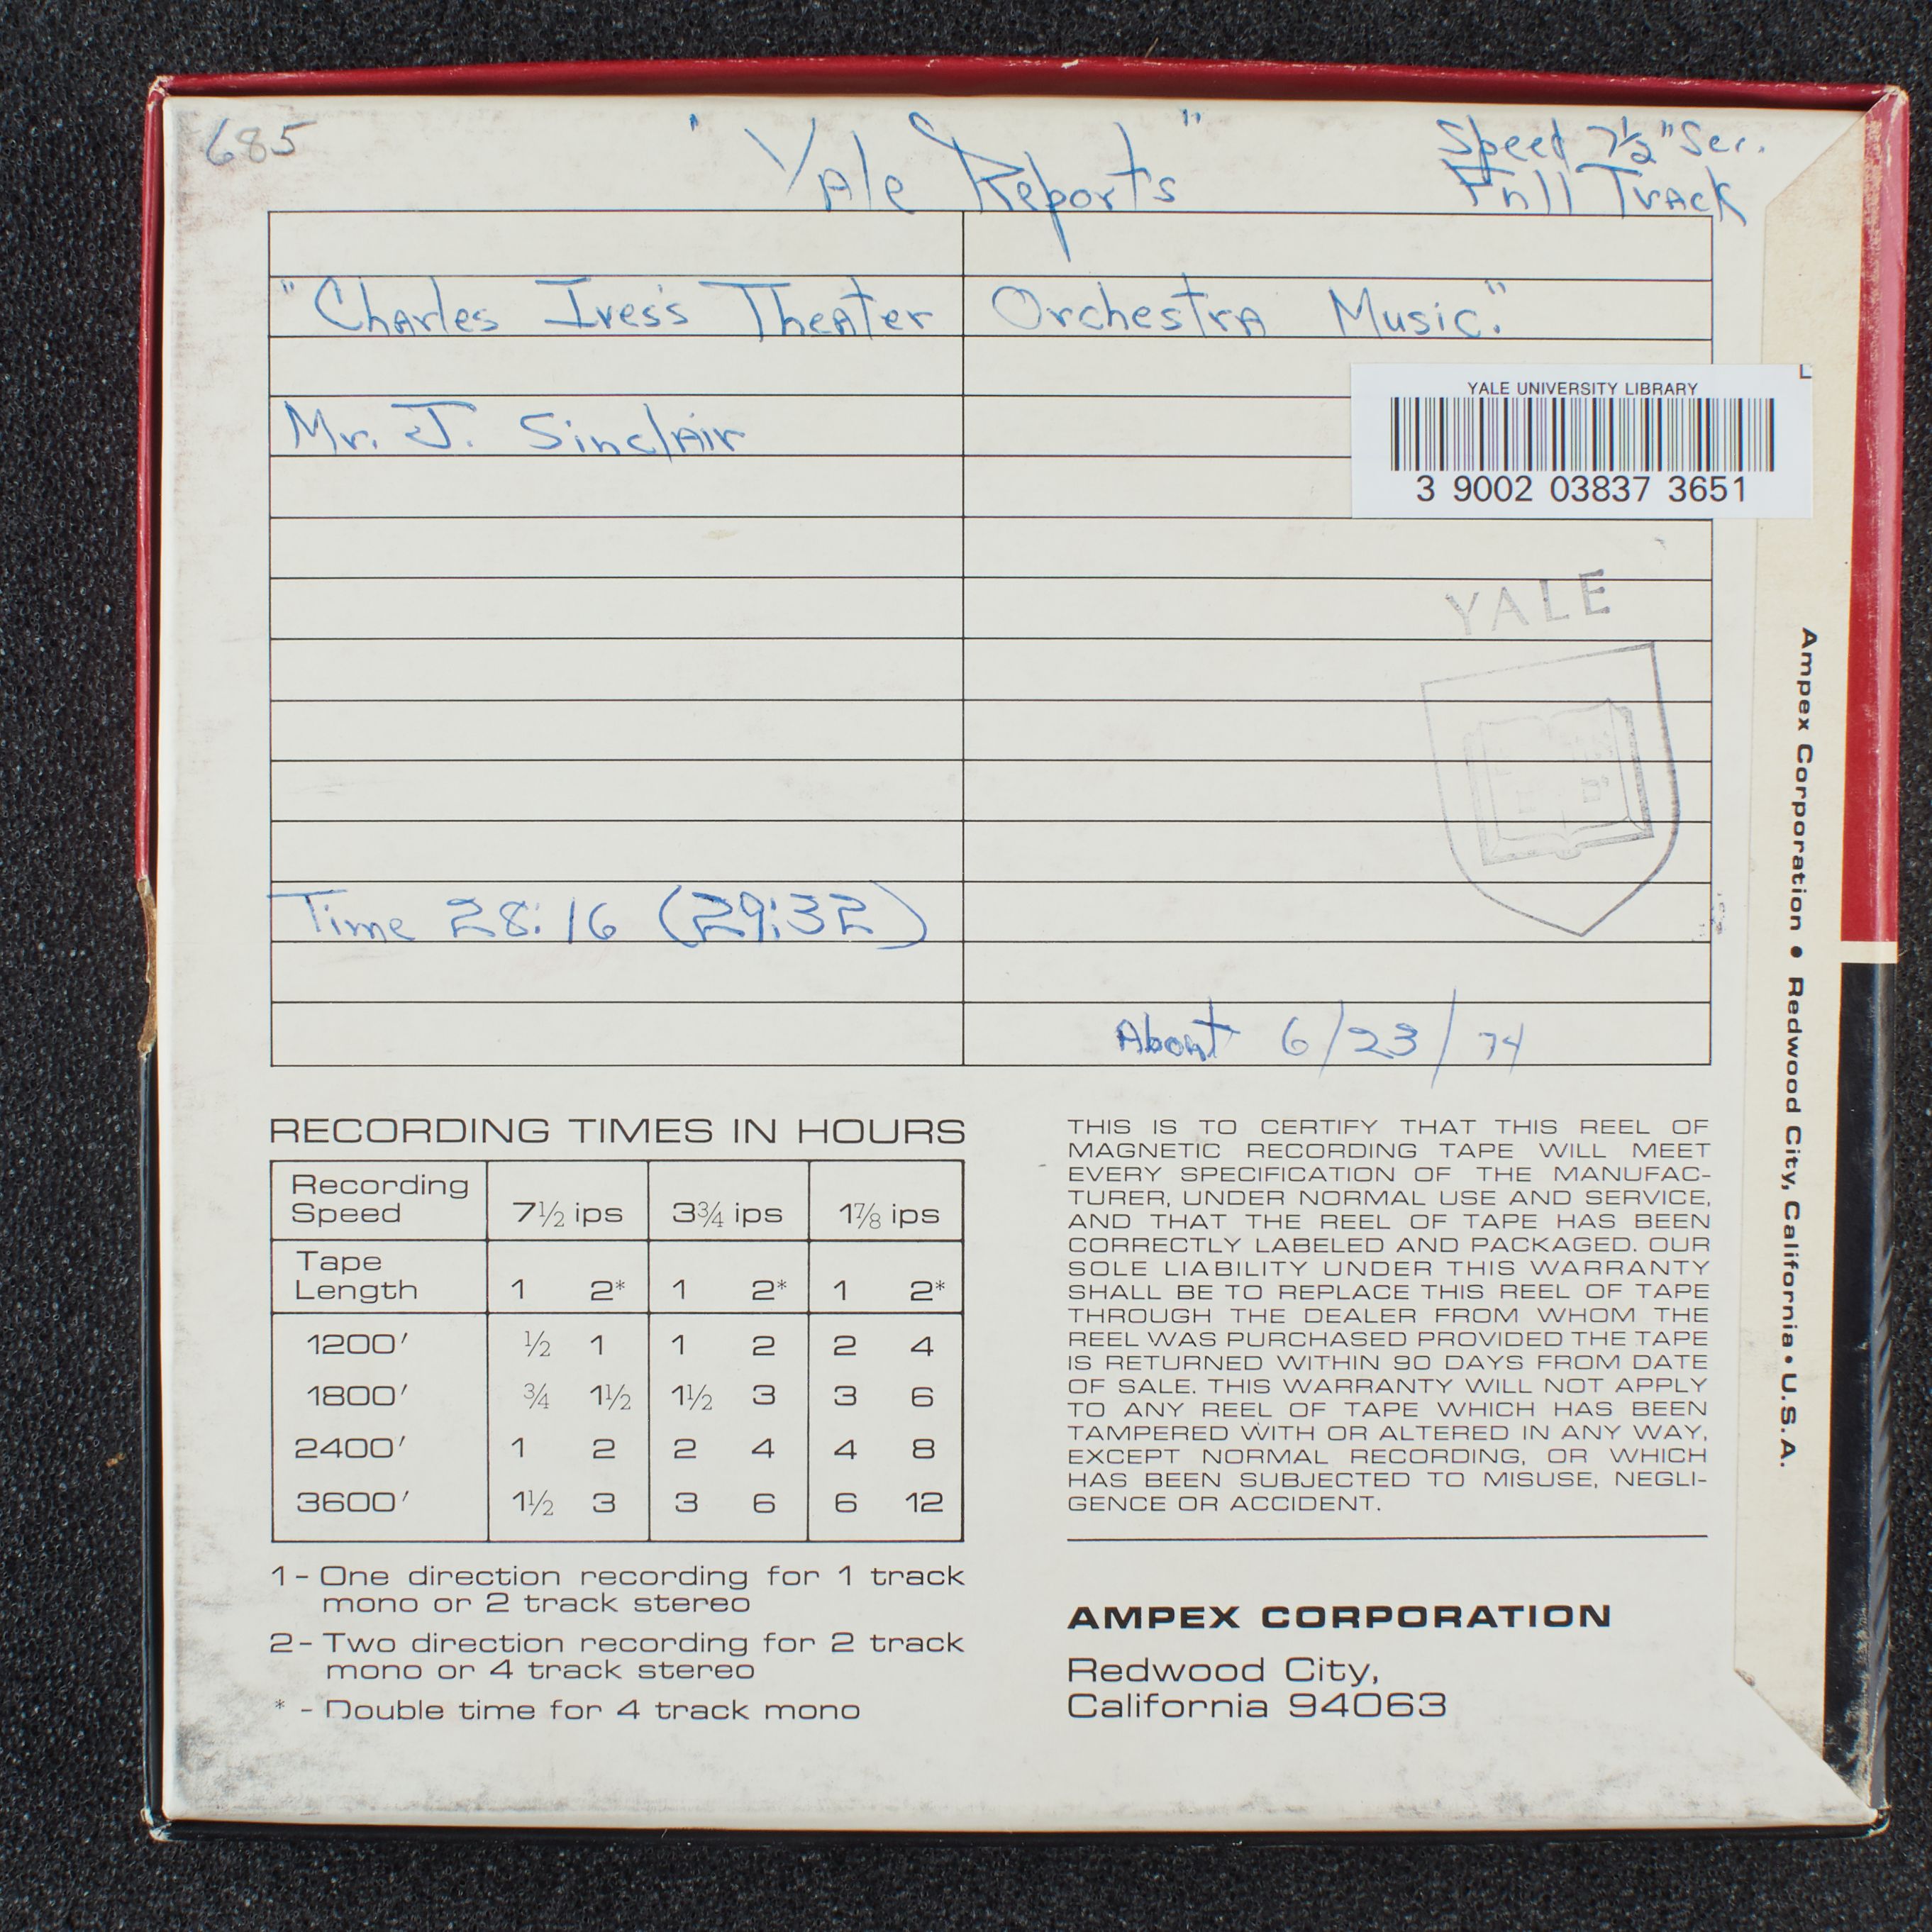 685
"Yale Reports"
Speed 7½"Sec.
Full Track
"Charles Ives's Theater Orchestra Music."
YALE UNIVERSITY LIBRARY
3 9002 03837 3651
Mr. J. Sinclair
YALE
Time 28:16 (29:32)
About 6/23/74
RECORDING TIMES IN HOURS
Recording Speed 7½ ips 3¾ ips 1⅞ ips
Tape Length 1 2* 1 2* 1 2*
1200' ½ 1 1 2 2 4
1800' ¾ 1½ 1½ 3 3 6
2400' 1 2 2 4 4 8
3600' 1½ 3 3 6 6 12
1- One direction recording for 1 track
mono or 2 track stereo
2- Two direction recording for 2 track
mono or 4 track stereo
* - Double time for 4 track mono
THIS IS TO CERTIFY THAT THIS REEL OF
MAGNETIC RECORDING TAPE WILL MEET
EVERY SPECIFICATION OF THE MANUFAC-
TURER, UNDER NORMAL USE AND SERVICE,
AND THAT THE REEL OF TAPE HAS BEEN
CORRECTLY LABELED AND PACKAGED. OUR
SOLE LIABILITY UNDER THIS WARRANTY
SHALL BE TO REPLACE THIS REEL OF TAPE
THROUGH THE DEALER FROM WHOM THE
REEL WAS PURCHASED PROVIDED THE TAPE
IS RETURNED WITHIN 90 DAYS FROM DATE
OF SALE. THIS WARRANTY WILL NOT APPLY
TO ANY REEL OF TAPE WHICH HAS BEEN
TAMPERED WITH OR ALTERED IN ANY WAY,
EXCEPT NORMAL RECORDING, OR WHICH
HAS BEEN SUBJECTED TO MISUSE, NEGLI-
GENCE OR ACCIDENT.
AMPEX CORPORATION
Redwood City,
California 94063
Ampex Corporation • Redwood City, California • U.S.A.